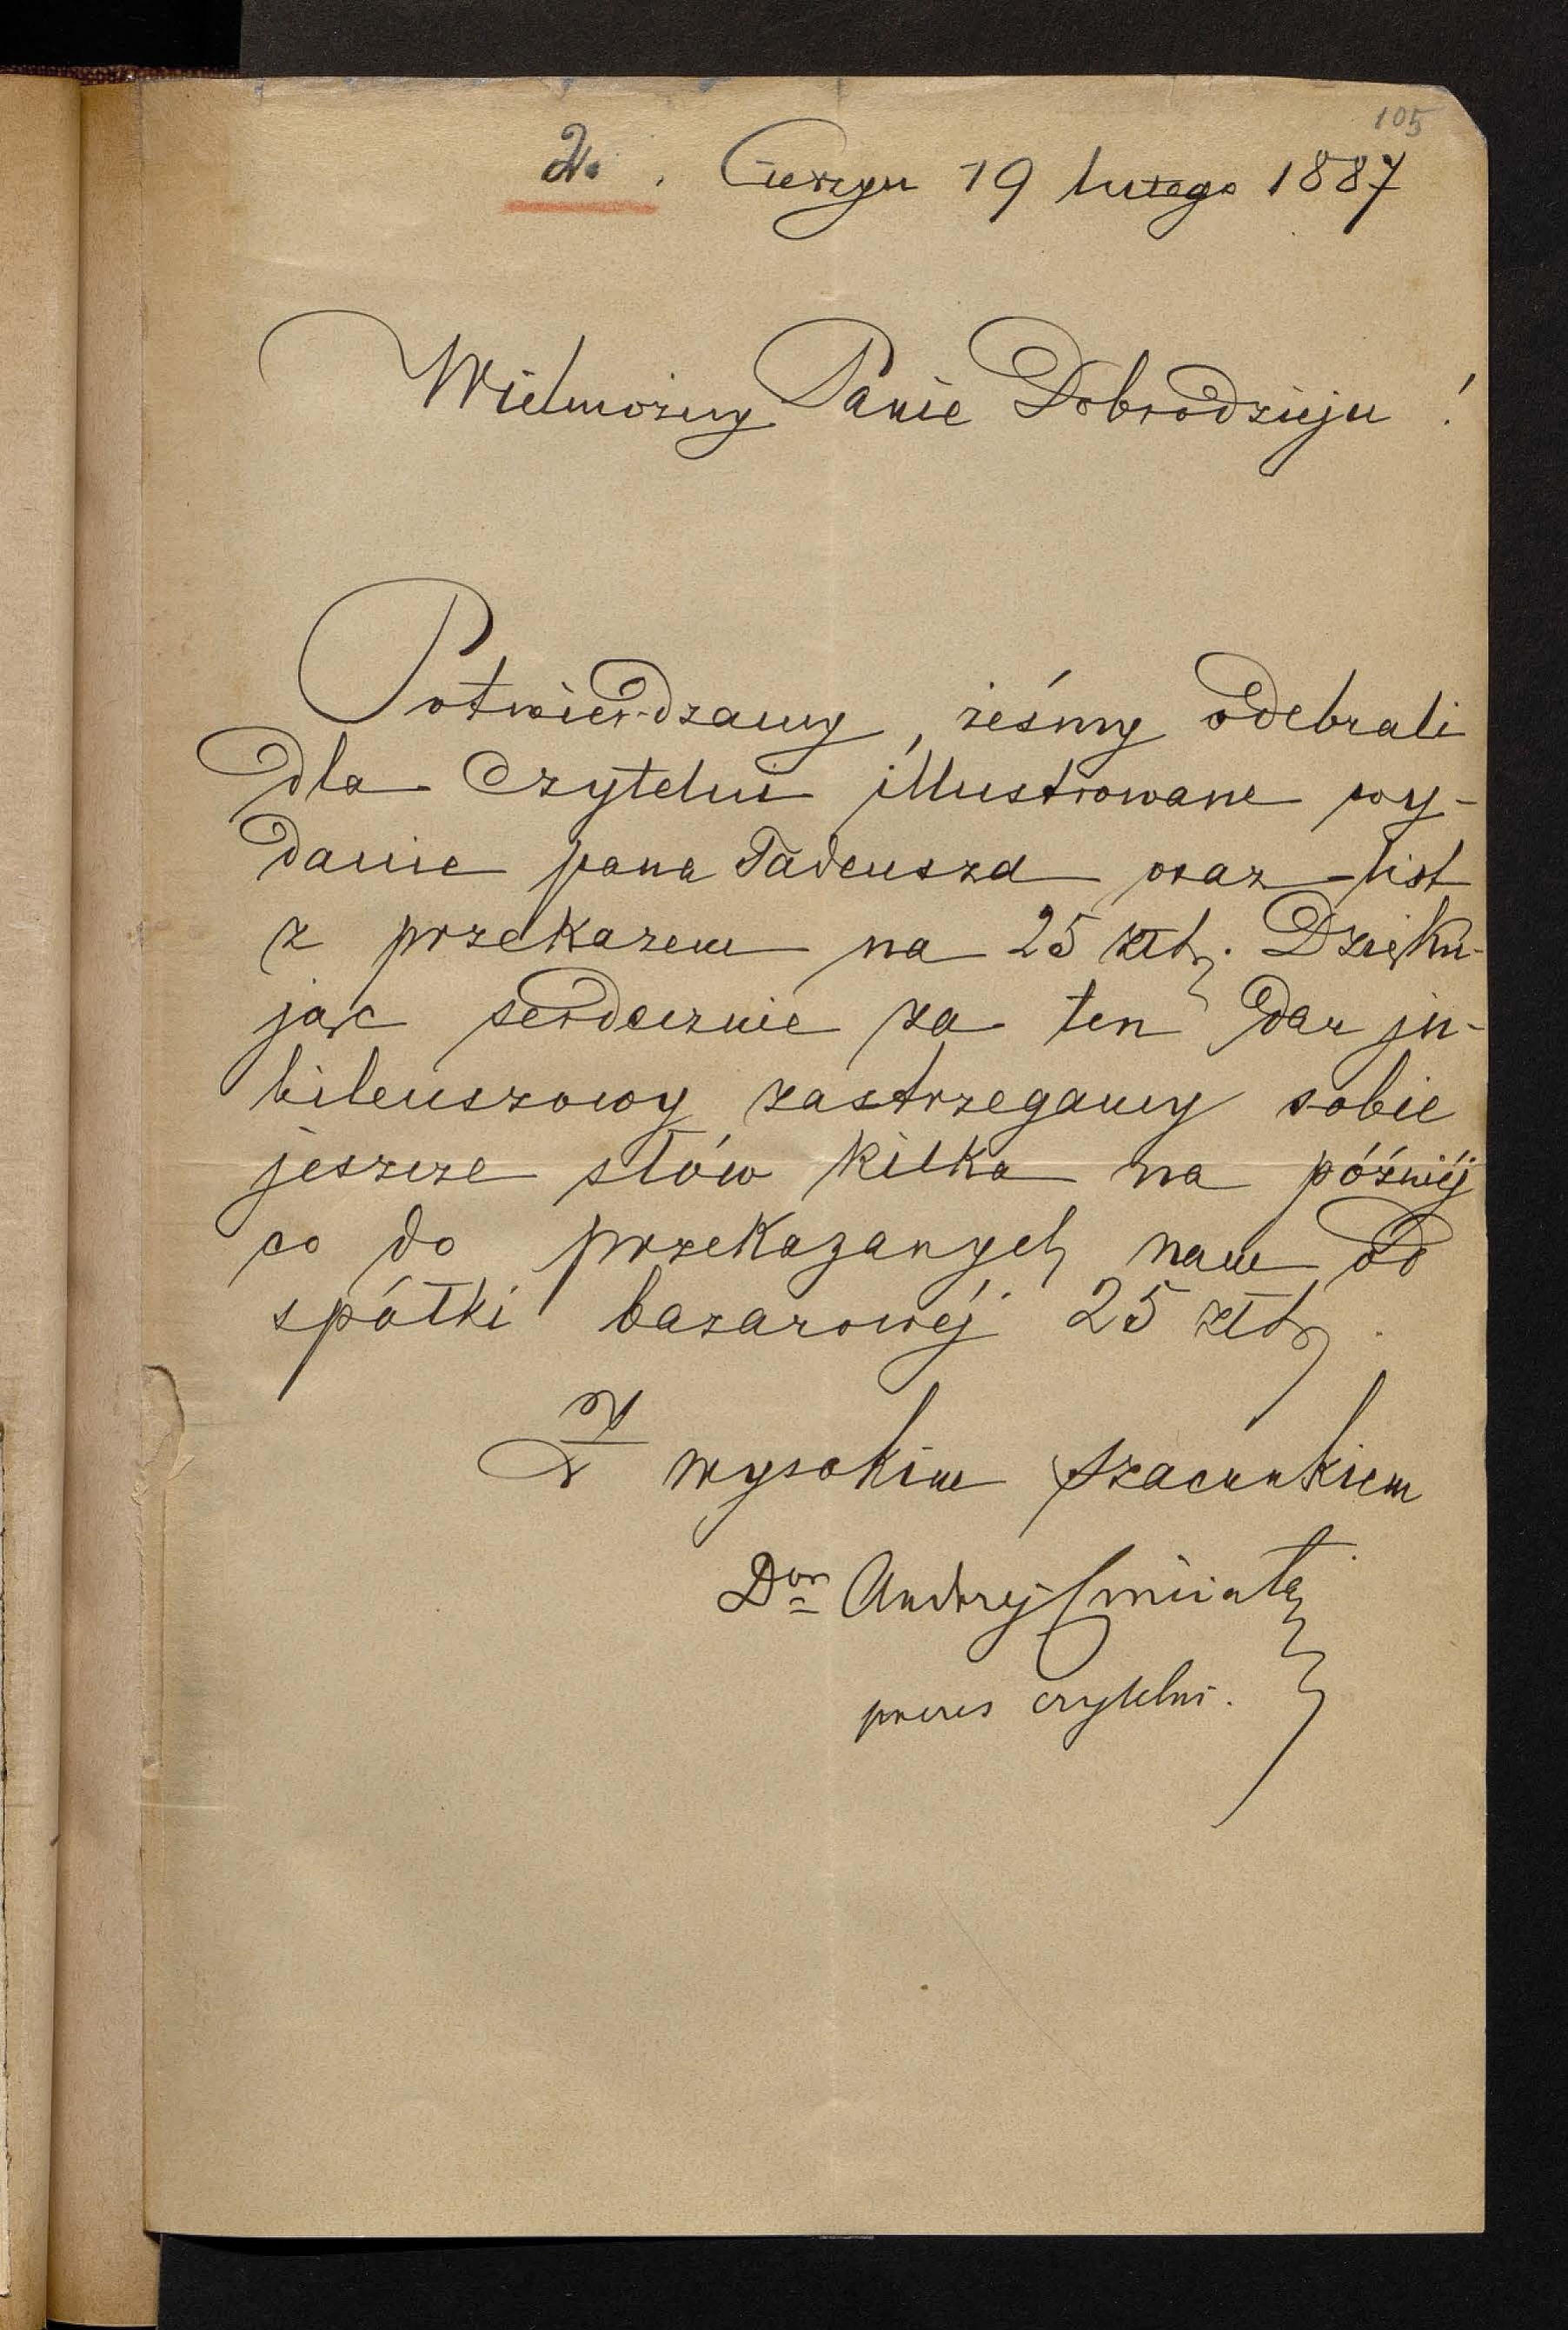 105
2. Cieszyn 19 lutego 1887
Wielmożny Panie Dobrodzieju!
Potwierdzamy, żeśmy odebrali
dla Czytelni illustrowane wy-
danie pana Tadeusza oraz list
z przekazem na 25 złtr. Dzięku-
jąc serdecznie za ten dar ju-
bileuszowy zastrzegamy sobie
jeszcze słów kilka na późniéj
co do przekazanych nam od
spółki bazarowéj 25 złtr.
Z wysokim szacunkiem
Dor Andrzej Cinciała
prezes czytelni.